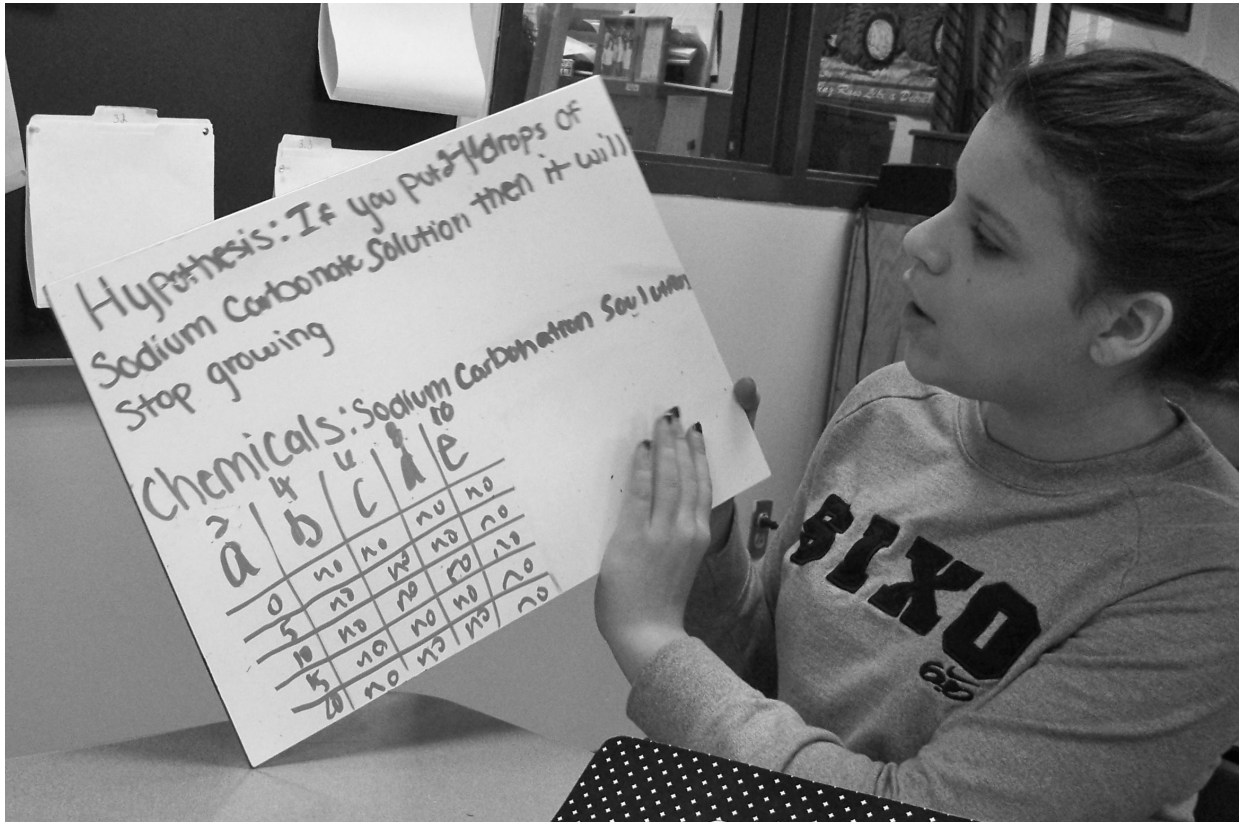 Hypothesis: If you put 2-4 drops of
Sodium Carbonate Solution then it will
Stop growing
Chemicals: Sodium Carbonation
2 4 8 10
a b c d e
0 no no no no
5 no no no no
10 no no no no
15 no no no no
20 no no no no
SIXO
6:20